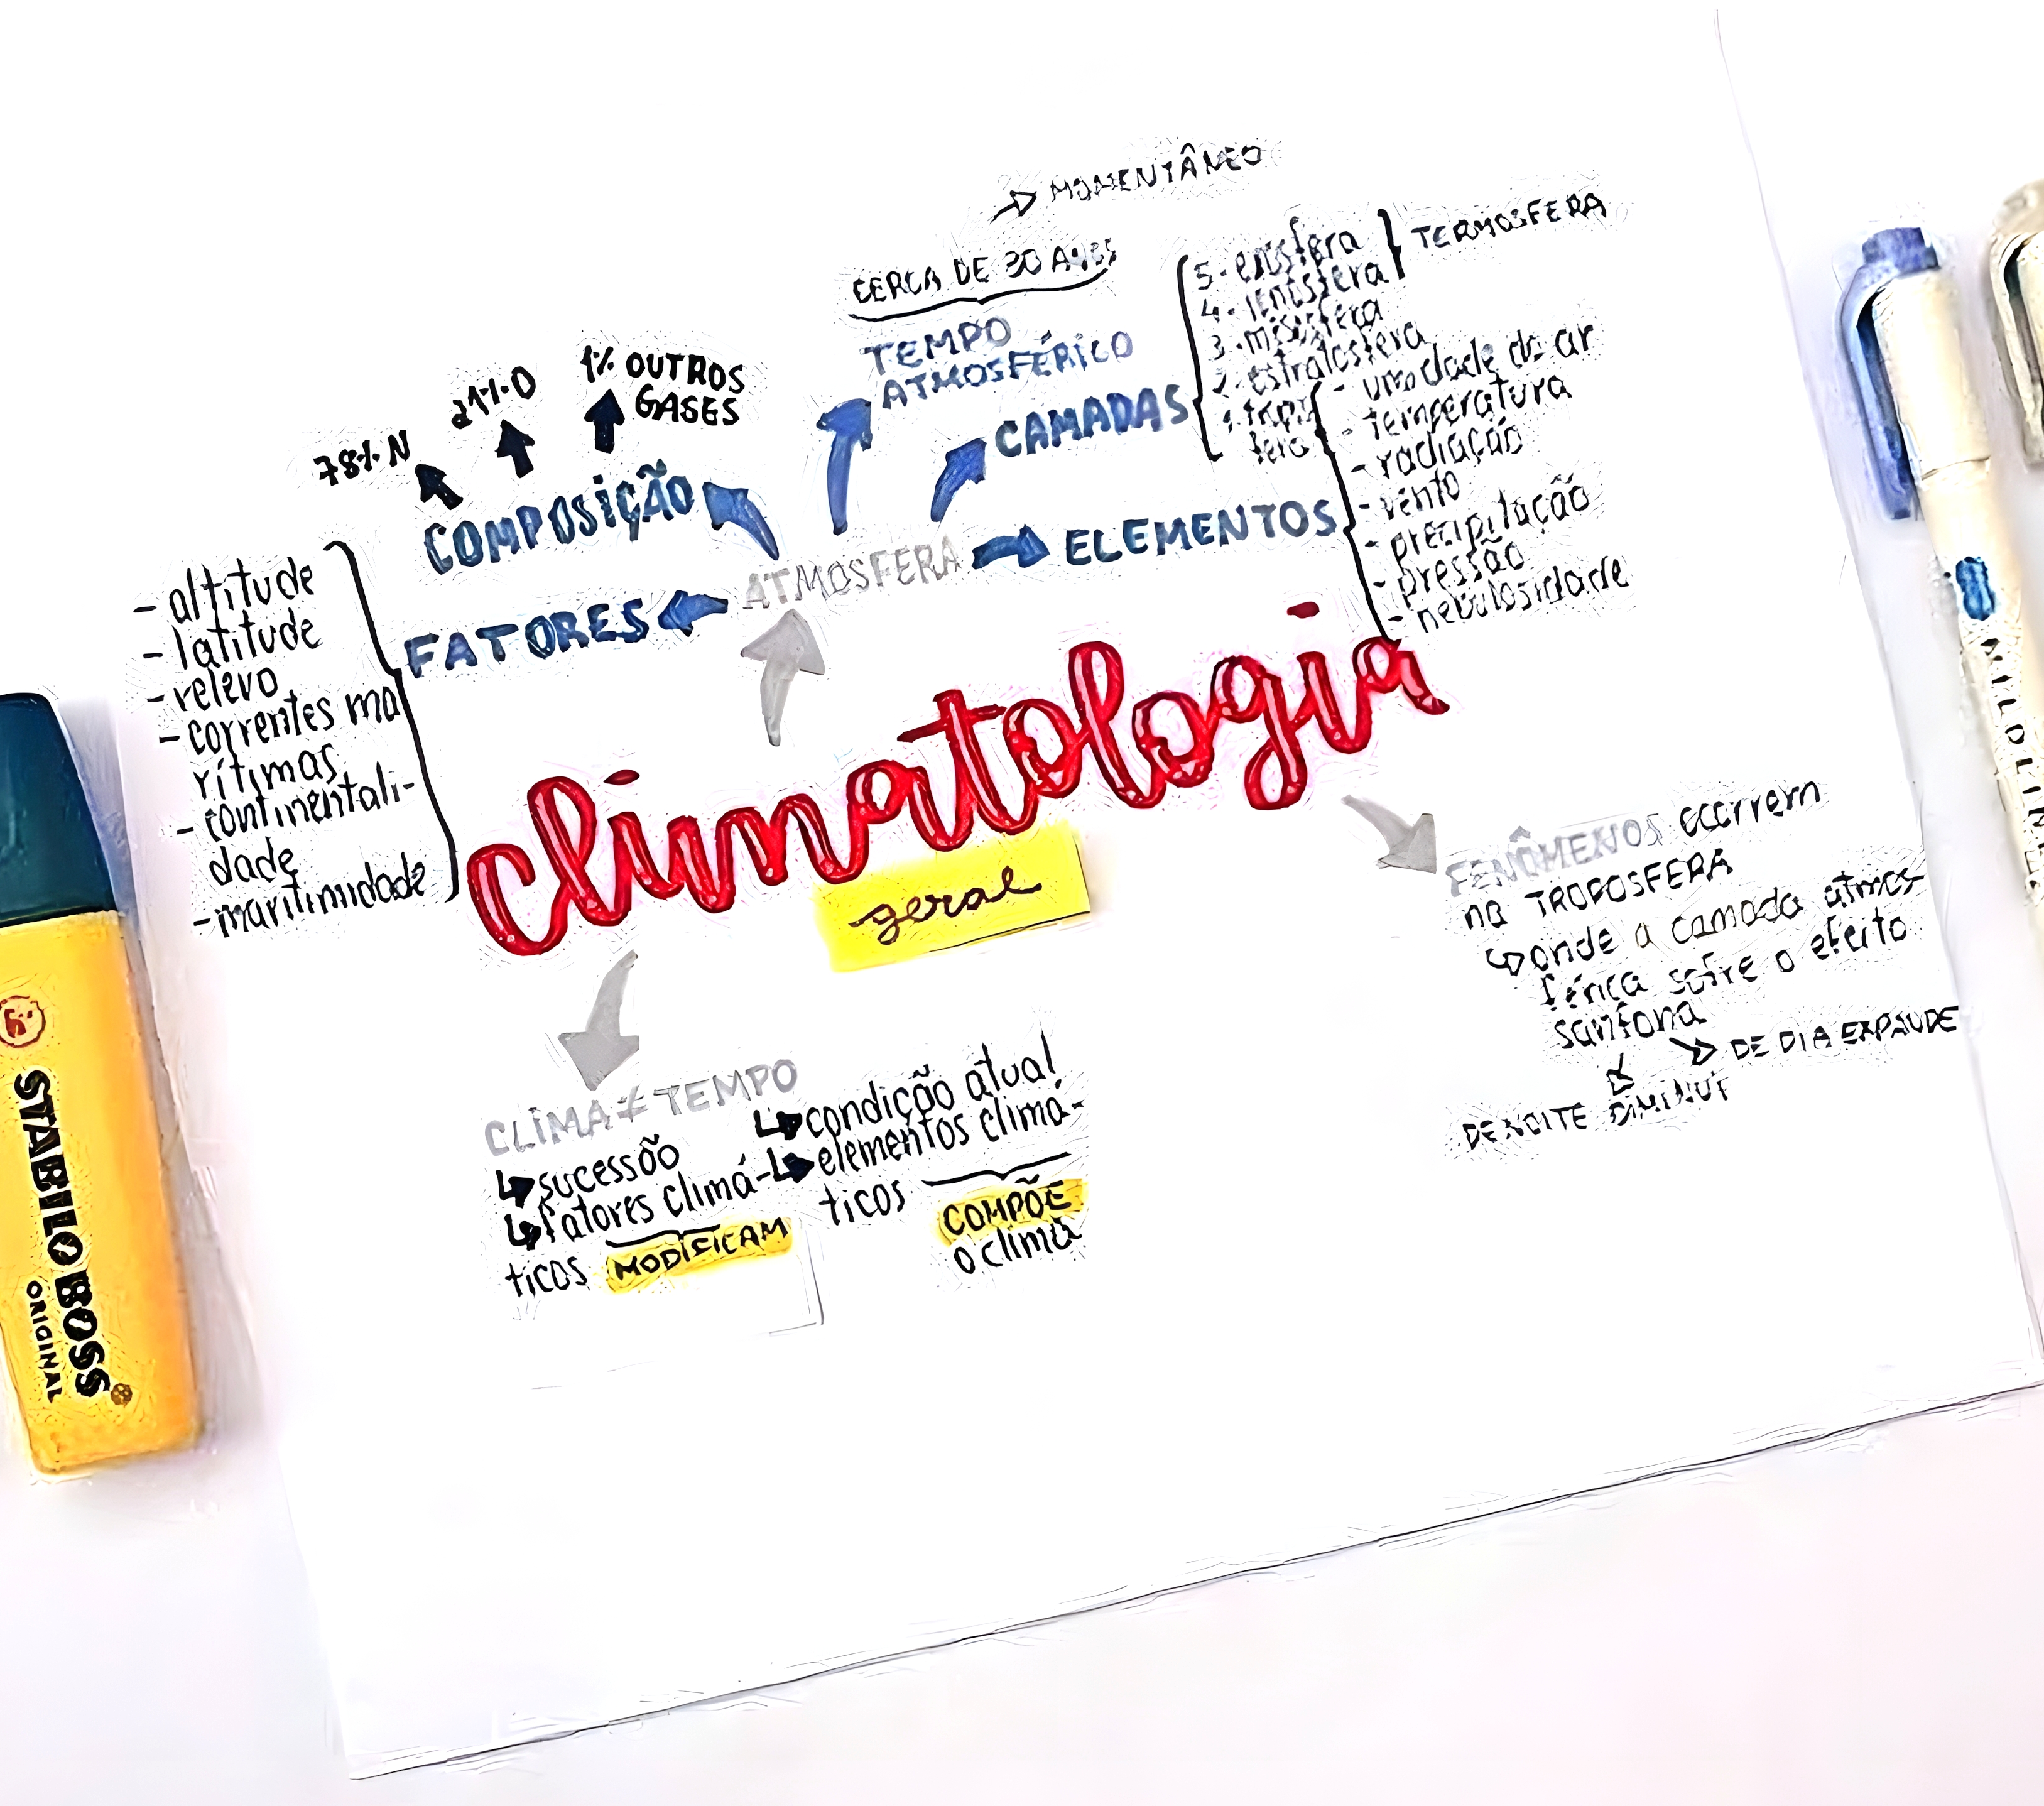 MOMENTÂNEO
CERCA DE 30 ANOS
TEMPO
ATMOSFÉRICO
CAMADAS
5-
4-
3-
2-estratosfera
1-
TERMOSFERA
78% N
21% O
1% OUTROS
GASES
COMPOSIÇÃO
ATMOSFERA
ELEMENTOS
- umidade do ar
- temperatura
- radiação
- vento
- precipitação
- pressão
- nebulosidade
FATORES
- altitude
- latitude
- relevo
- correntes ma
rítimas
- continentali-
dade
- maritimidade
climatologia
geral
FENÔMENOS ocorrem
na TROPOSFERA
onde a camada atmos-
férica sofre o efeito
sanfona
DE DIA EXPANDE
DE NOITE DIMINUI
CLIMA ≠ TEMPO
sucessão
fatores climá-
ticos MODIFICAM
condição atual
elementos climá-
ticos COMPÕE
o clima
STABILO BOSS
ORIGINAL
MILDLINE